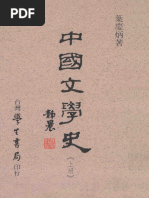 葉慶炳著
中國文學史
《上冊》
靜農
台灣學生書局印行